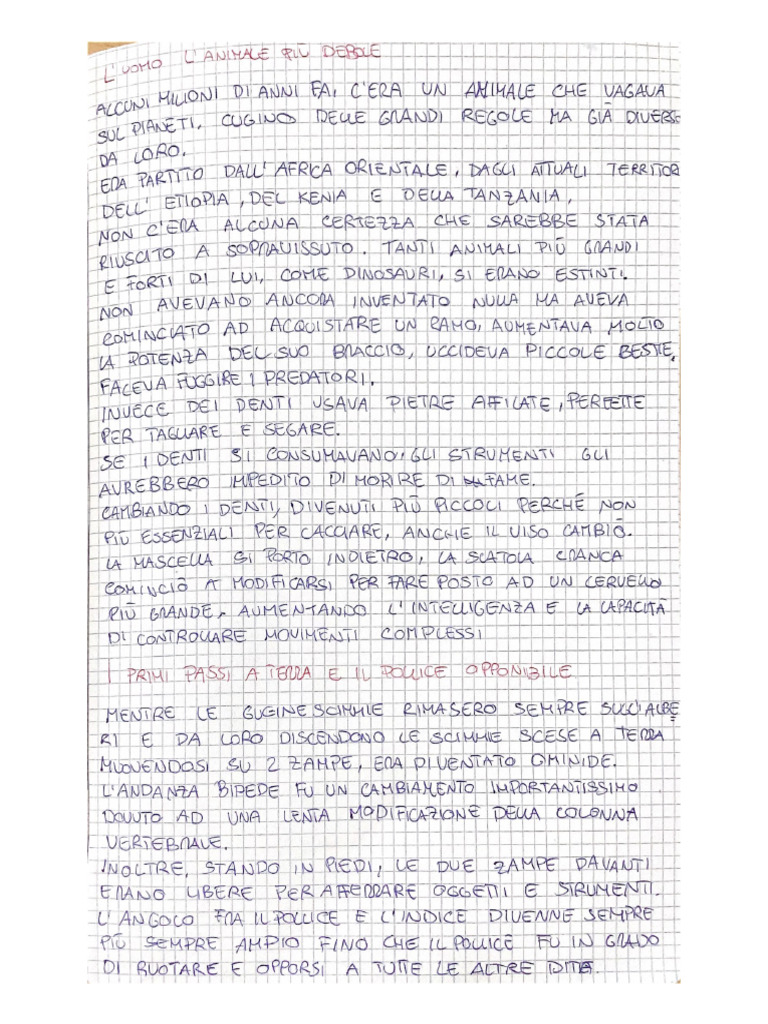 L'UOMO L'ANIMALE PIÙ DEBOLE
ALCUNI MILIONI DI ANNI FA, C'ERA UN ANIMALE CHE VAGAVA
SUL PIANETI, CUGINO DELLE GRANDI REGOLE MA GIÀ DIVERSE
DA LORO.
ERA PARTITO DALL'AFRICA ORIENTALE, DAGLI ATTUALI TERRITOR
DELL'ETIOPIA, DEL KENIA E DELLA TANZANIA,
NON C'ERA ALCUNA CERTEZZA CHE SAREBBE STATA
RIUSCITO A SOPRAVISSUTO. TANTI ANIMALI PIÙ GRANDI
E FORTI DI LUI, COME DINOSAURI, SI ERANO ESTINTI.
NON AVEVANO ANCORA INVENTATO NULLA MA AVEVA
COMINCIATO AD ACQUISTARE UN RAMO, AUMENTAVA MOLTO
LA POTENZA DEL SUO BRACCIO, UCCIDEVA PICCOLE BESTIE,
FACEVA FUGGIRE I PREDATORI.
INVECE DEI DENTI USAVA PIETRE AFFILATE, PERFETTE
PER TAGLIARE E SEGARE.
SE I DENTI SI CONSUMAVANO, GLI STRUMENTI GLI
AVREBBERO IMPEDITO DI MORIRE DI FAME.
CAMBIANDO I DENTI, DIVENUTI PIÙ PICCOLI PERCHÉ NON
PIÙ ESSENZIALI PER CACCIARE, ANCHE IL VISO CAMBIÒ.
LA MASCELLA SI PORTO INDIETRO, LA SCATOLA CRANCA
COMINCIÒ A MODIFICARSI PER FARE POSTO AD UN CERVELLO
PIÙ GRANDE, AUMENTANDO L'INTELLIGENZA E LA CAPACITÀ
DI CONTROLLARE MOVIMENTI COMPLESSI
I PRIMI PASSI A TERRA E IL POLLICE OPPONIBILE
MENTRE LE GUGINE SCIMMIE RIMASERO SEMPRE SUGLI ALBE
RI E DA LORO DISCENDONO LE SCIMMIE SCESE A TERRA
MUOVENDOSI SU 2 ZAMPE, ERA DIVENTATO OMINIDE.
L'ANDANZA BIPEDE FU UN CAMBIAMENTO IMPORTANTISSIMO
DOVUTO AD UNA LENTA MODIFICAZIONE DELLA COLONNA
VERTEBRALE.
INOLTRE, STANDO IN PIEDI, LE DUE ZAMPE DAVANTI
ERANO LIBERE PER AFFERRARE OGGETTI E STRUMENTI.
L'ANGOLO FRA IL POLLICE E L'INDICE DIVENNE SEMPRE
PIÙ SEMPRE AMPIO FINO CHE IL POLLICE FU IN GRADO
DI RUOTARE E OPPORSI A TUTTE LE ALTRE DITA.